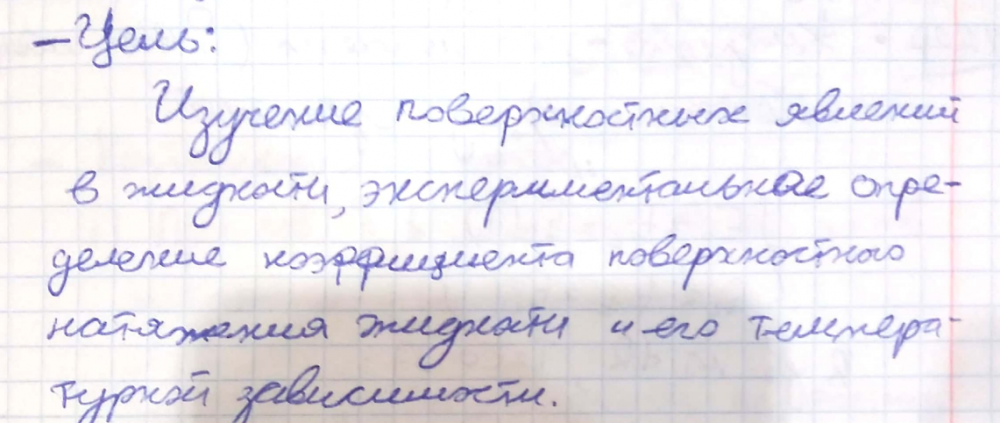 – Цель:
Изучение поверхностных явлений
в жидкости, экспериментальное опре-
деление коэффициента поверхностного
натяжения жидкости и его темпера-
турной зависимости.